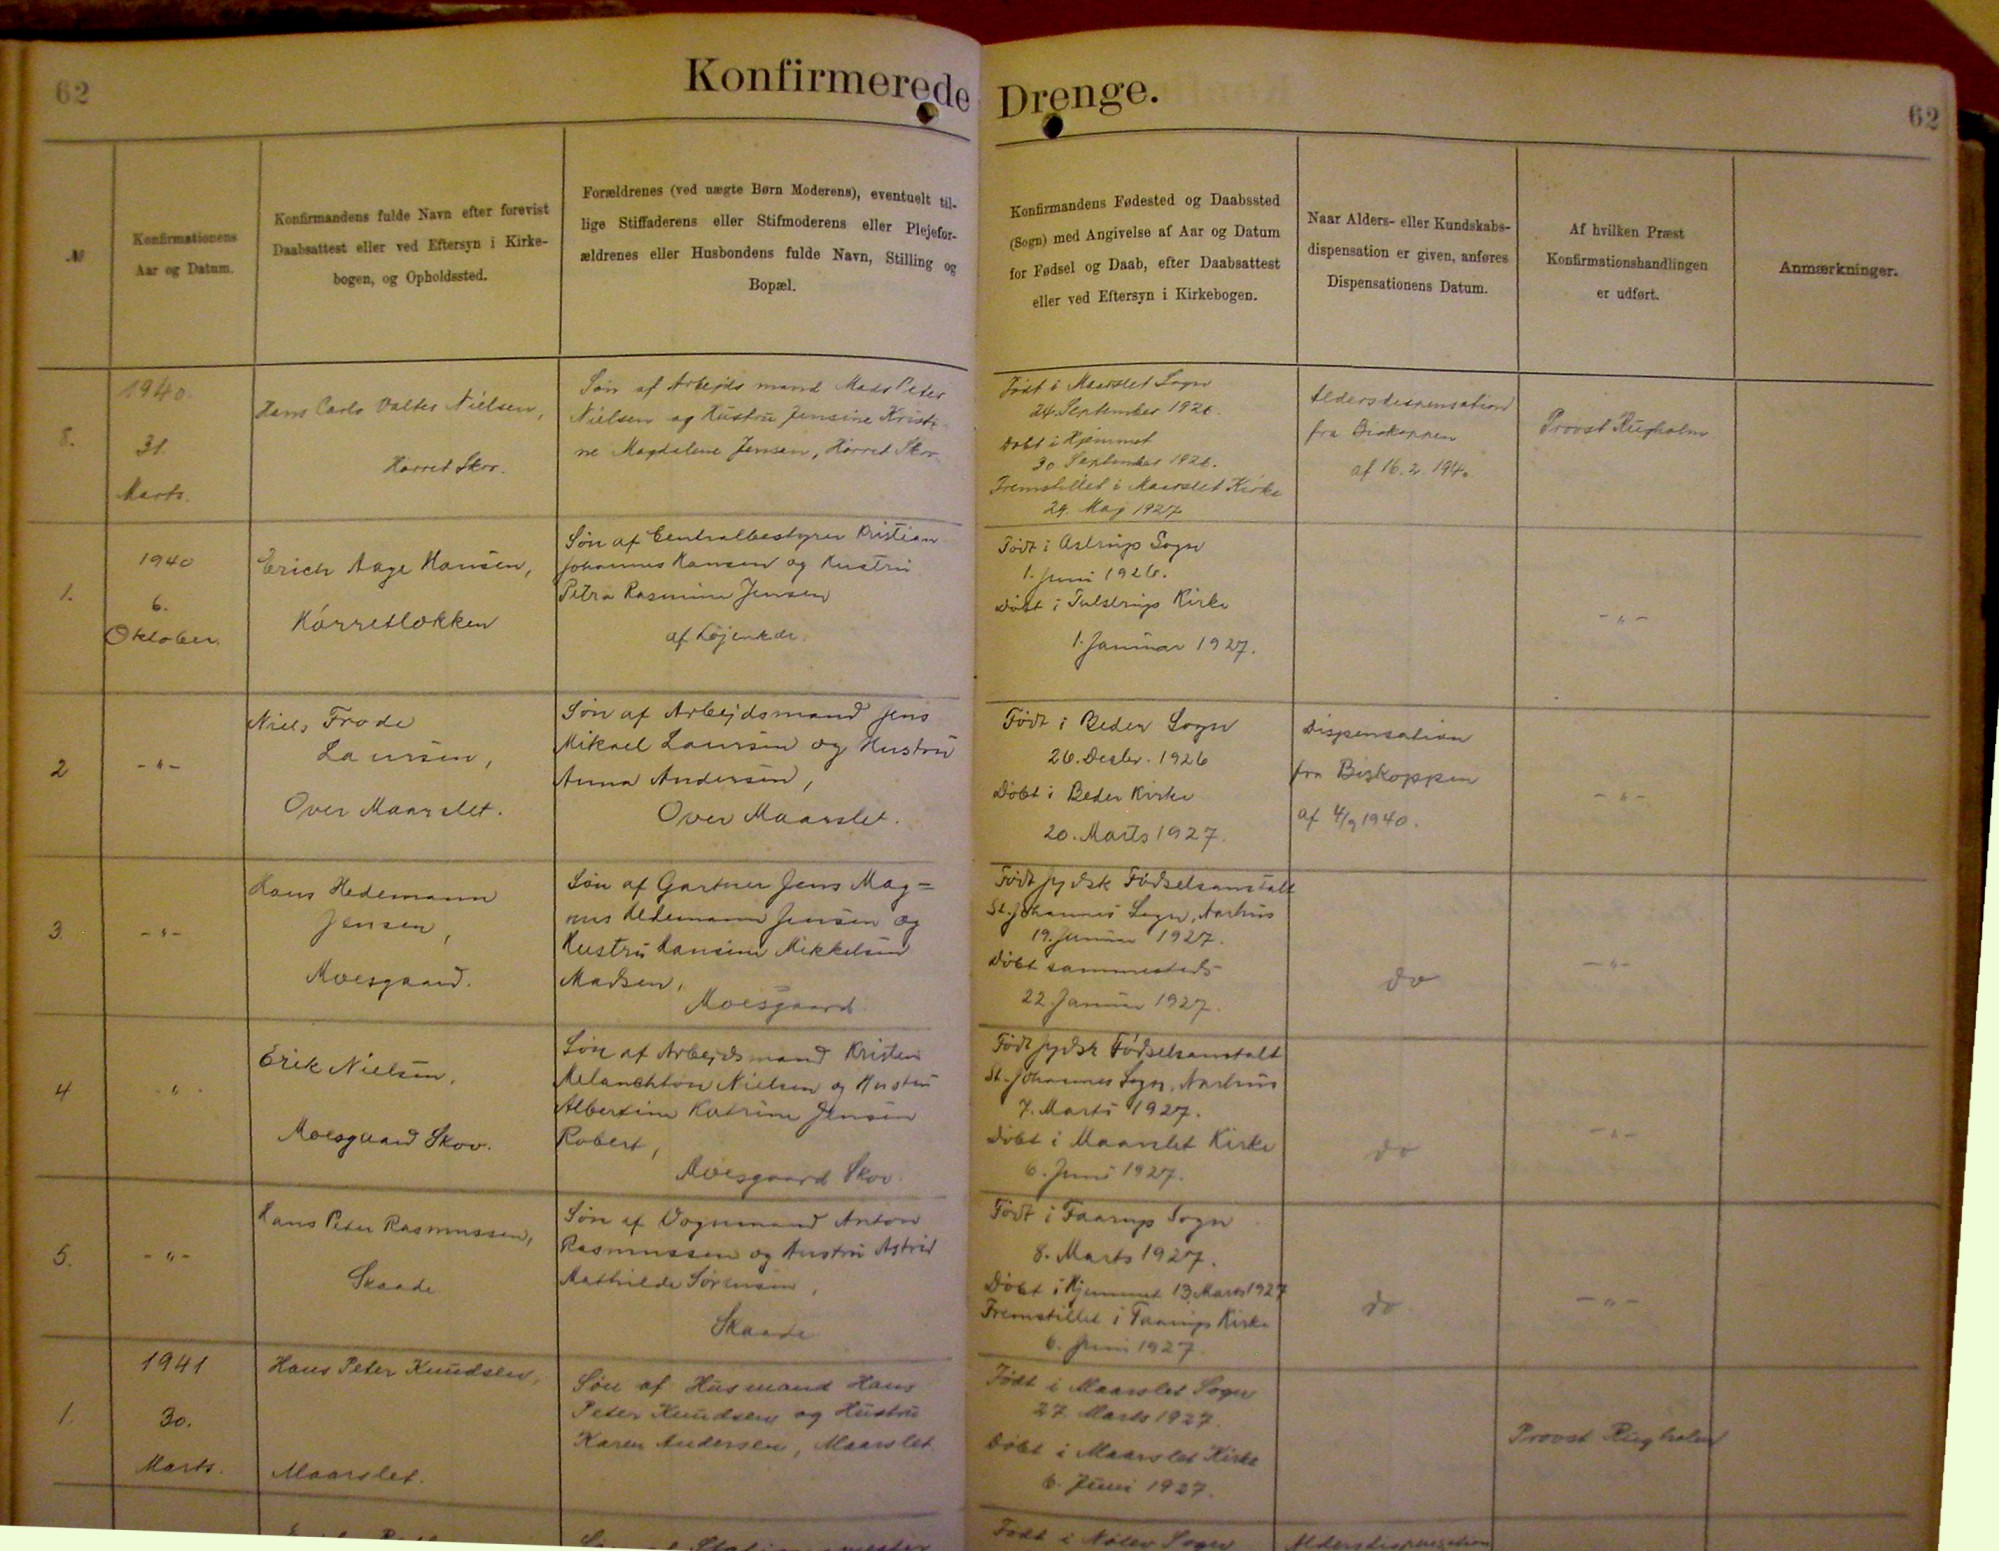 62
Konfirmerede Drenge.
62
№
Konfirmationens
Aar og Datum.
Konfirmandens fulde Navn efter forevist
Daabsattest eller ved Eftersyn i Kirke-
bogen, og Opholdssted.
Forældrenes (ved uægte Børn Moderens), eventuelt til-
lige Stiffaderens eller Stifmoderens eller Plejefor-
ældrenes eller Husbondens fulde Navn, Stilling og
Bopæl.
Konfirmandens Fødested og Daabssted
(Sogn) med Angivelse af Aar og Datum
for Fødsel og Daab, efter Daabsattest
eller ved Eftersyn i Kirkebogen.
Naar Alders- eller Kundskabs-
dispensation er given, anføres
Dispensationens Datum.
Af hvilken Præst
Konfirmationshandlingen
er udført.
Anmærkninger.
8.
1940.
31.
Marts.
Hans Carlo Valter Nielsen,
Hørret Skov.
Søn af Arbejdsmand Mads Peter
Nielsen og Hustru Jensine Kristi-
ne Magdalene Jensen, Hørret Skov
Født i Maarslet Sogn
24. September 1926.
Døbt i Hjemmet
30. September 1926.
Fremstillet i Maarslet Kirke
29. Maj 1927
Aldersdispensation
fra Biskoppen
af 16. 2. 1940
Provst Rugholm
1.
1940
6.
Oktober.
Erich Aage Hansen,
Hørretløkken
Søn af Centralbestyrer Kristian
Johannes Hansen og Hustru
Petra Rasmine Jensen
af Løjenkær.
Født i Astrup Sogn
1. Juni 1926.
Døbt i Tulstrup Kirke
1. Januar 1927.
- " -
2
- " -
Niels Frode
Laursen,
Over Maarslet.
Søn af Arbejdsmand Jens
Mikael Laursen og Hustru
Anna Andersen,
Over Maarslet.
Født i Beder Sogn
26. Decbr. 1926
Døbt i Beder Kirke
20. Marts 1927.
Dispensation
fra Biskoppen
af 4/9 1940.
- " -
3.
- " -
Hans Hedemann
Jensen,
Moesgaard.
Søn af Gartner Jens Mag=
nus Hedemann Jensen og
Hustru Hansine Mikkelsen
Madsen,
Moesgaard
Født Jydsk Fødselsanstalt
St. Johannes Sogn, Aarhus
19. Januar 1927.
Døbt sammesteds
22. Januar 1927.
do
- " -
4
- " -
Erik Nielsen,
Moesgaard Skov.
Søn af Arbejdsmand Kristen
Melanchton Nielsen og Hustru
Albertine Katrine Jensen
Robert,
Moesgaard Skov.
Født Jydsk Fødselsanstalt
St. Johannes Sogn, Aarhus
7. Marts 1927.
Døbt i Maarslet Kirke
6. Juni 1927.
do
- " -
5.
- " -
Hans Peter Rasmussen,
Skaade
Søn af Vognmand Anton
Rasmussen og Hustru Astrid
Mathilde Sørensen,
Skaade
Født i Faarup Sogn
8. Marts 1927.
Døbt i Hjemmet 13. Marts 1927
Fremstillet i Faarup Kirke
6. Juni 1927.
do
- " -
1.
1941
30.
Marts.
Hans Peter Knudsen,
Maarslet.
Søn af Husmand Hans
Peter Knudsen og Hustru
Karen Andersen, Maarslet
Født i Maarslet Sogn
27. Marts 1927.
Døbt i Maarslet Kirke
6. Juni 1927.
Provst Rugholm
Født i Nølev Sogn
Aldersdispensation